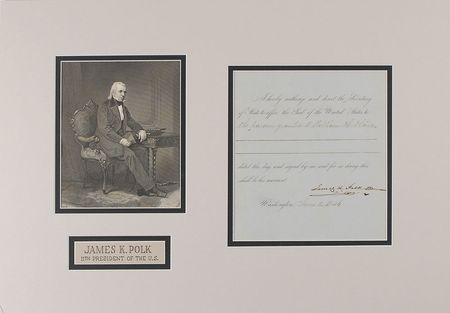 JAMES K. POLK
11TH PRESIDENT OF THE U.S.
I hereby authorize and direct the Secretary
of State to affix the Seal of the United States to
the
dated this day and signed by me and for so doing this
shall be his warrant.
James K. Polk
Washington